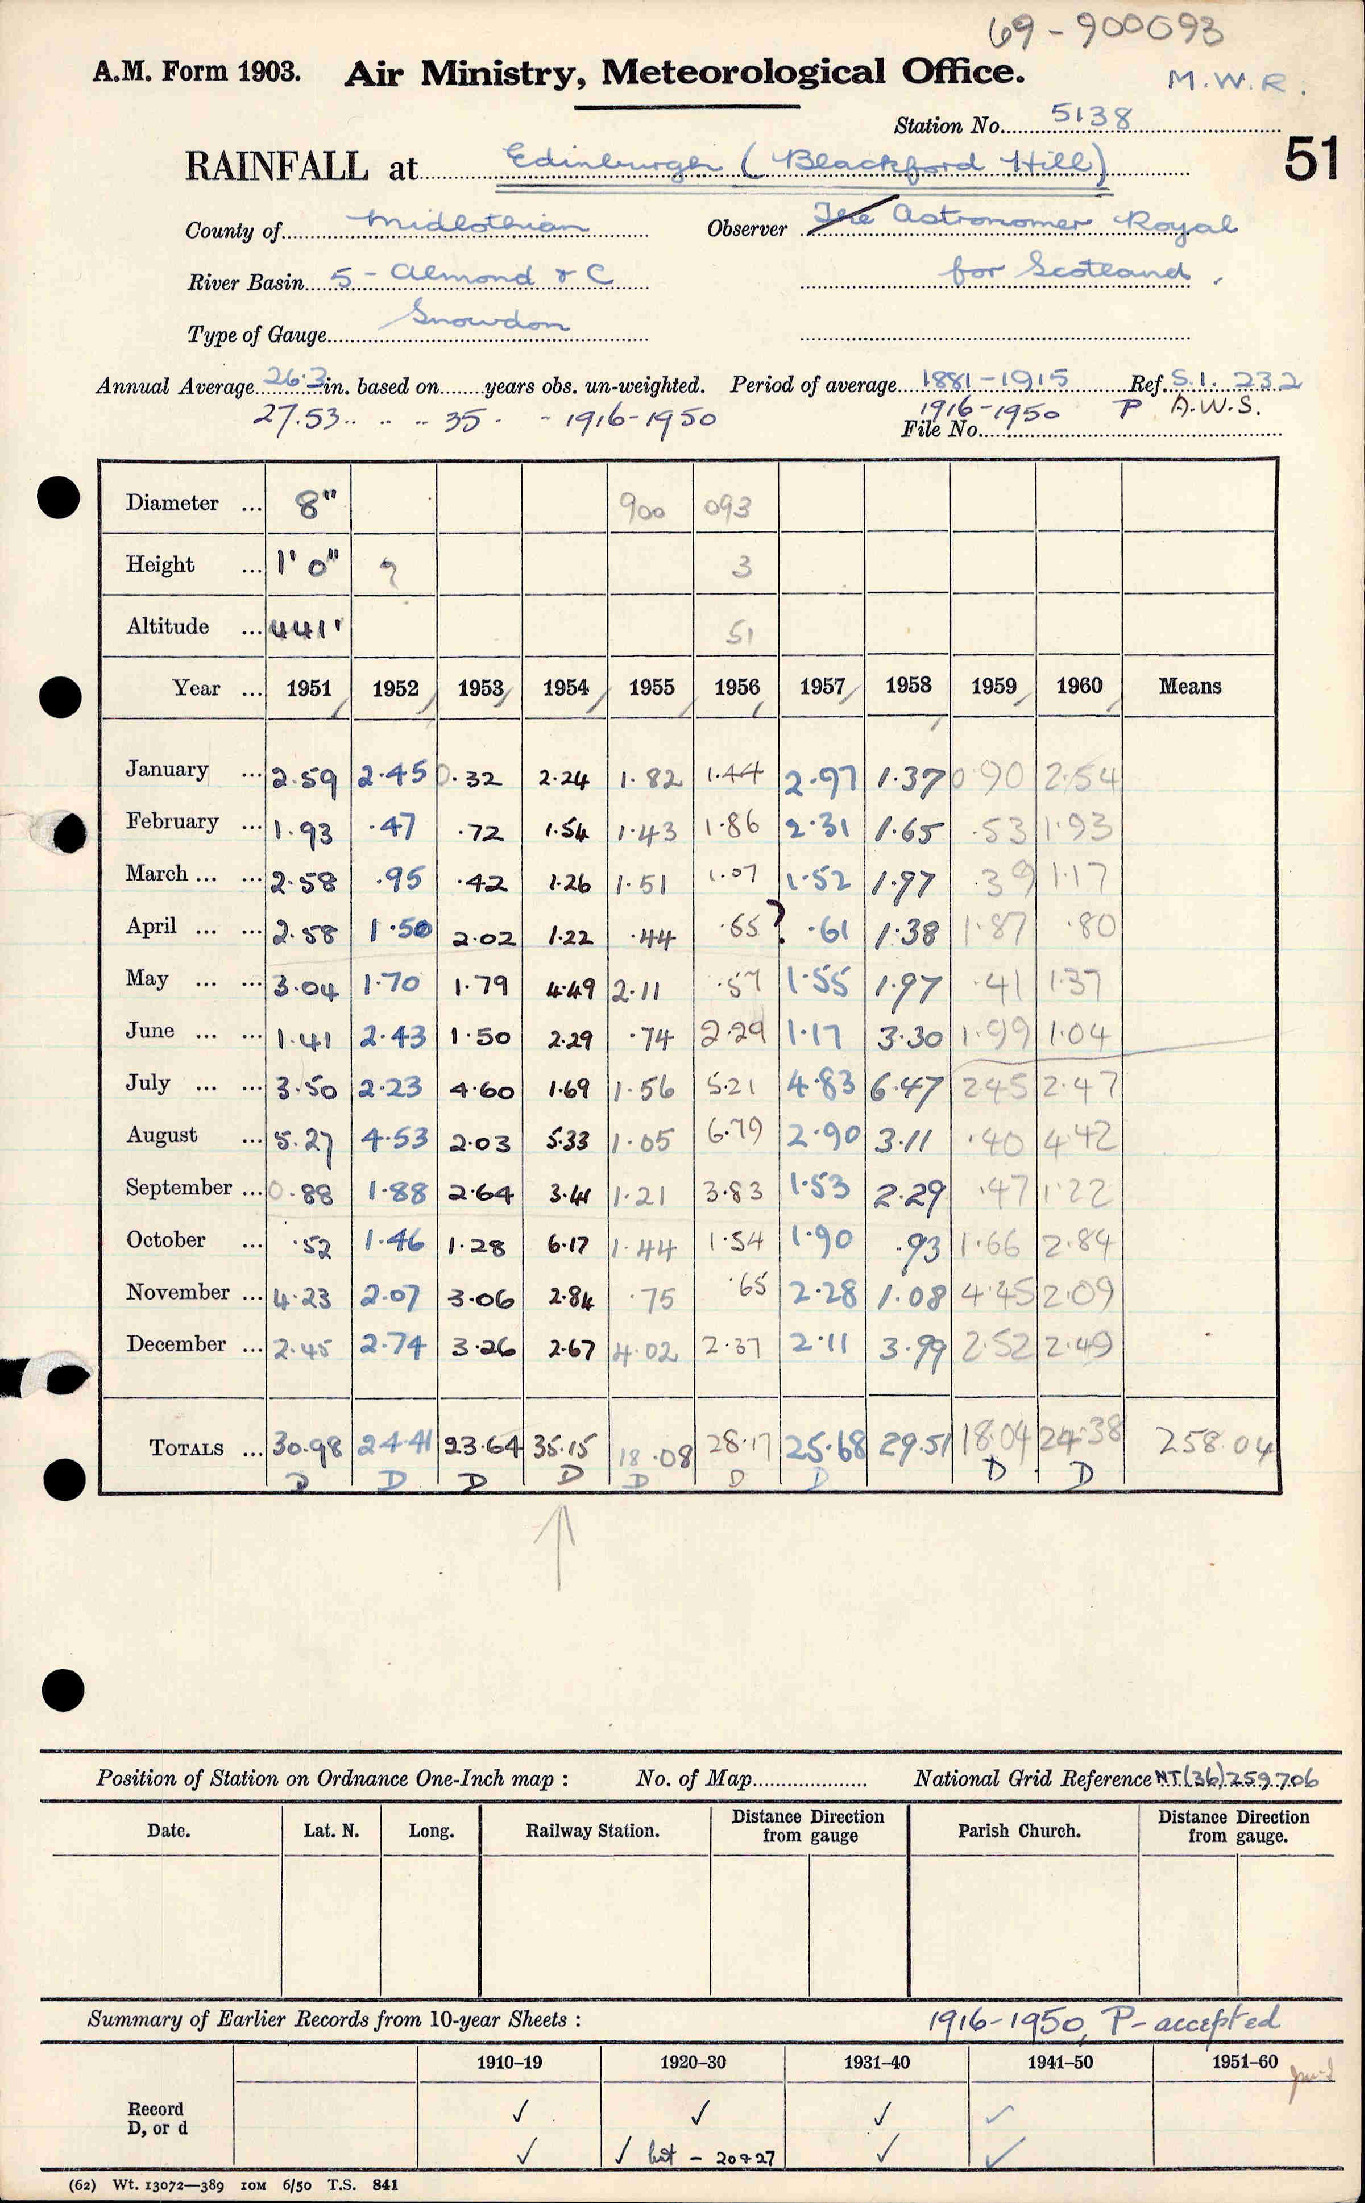 69-900093
A.M. Form 1903. Air Ministry, Meteorological Office.
M.W.R.
Station No. 5138
51
RAINFALL at Edinburgh (Blackford Hill)
County of Midlothian Observer The Astronomer Royal
River Basin 5 - Almond & C for Scotland.
Type of Gauge Snowdon
Annual Average 26.3 in. based on years obs. un-weighted. Period of average 1881-1915 Ref. S.I. 232
27.53 .. .. .. 35 - - 1916-1950 1916-1950 P A.W.S.
File No.
Diameter ... 8" 900 093
Height ... 1' 0" ? 3
Altitude ... 441' 51
Year ... 1951 1952 1953 1954 1955 1956 1957 1958 1959 1960 Means
January ... 2.59 2.45 0.32 2.24 1.82 1.44 2.97 1.37 0.90 2.54
February ... 1.93 .47 .72 1.54 1.43 1.86 2.31 1.65 .53 1.93
March ... ... 2.58 .95 .42 1.26 1.51 1.07 1.52 1.97 .39 1.17
April ... ... 2.58 1.50 2.02 1.22 .44 .55? .61 1.38 1.87 .80
May ... ... 3.04 1.70 1.79 4.49 2.11 .57 1.55 1.97 .41 1.37
June ... ... 1.41 2.43 1.50 2.29 .74 2.29 1.17 3.30 1.99 1.04
July ... ... 3.50 2.23 4.60 1.69 1.56 5.21 4.83 6.47 2.45 2.47
August ... 5.27 4.53 2.03 5.33 1.05 6.79 2.90 3.11 .40 4.42
September ... 0.88 1.88 2.64 3.41 1.21 3.83 1.53 2.29 .47 1.22
October ... .52 1.46 1.28 6.17 1.44 1.54 1.90 .93 1.66 2.84
November ... 4.23 2.07 3.06 2.84 .75 .65 2.28 1.08 4.45 2.09
December ... 2.45 2.74 3.26 2.67 4.02 2.37 2.11 3.99 2.52 2.49
TOTALS ... 30.98 24.41 23.64 35.15 18.08 28.17 25.68 29.51 18.04 24.38 258.04
D D D D D D D D D
Position of Station on Ordnance One-Inch map : No. of Map National Grid Reference NT(36)259706
Date. Lat. N. Long. Railway Station. Distance Direction from gauge Parish Church. Distance Direction from gauge.
Summary of Earlier Records from 10-year Sheets : 1916-1950, P- accepted
1910-19 1920-30 1931-40 1941-50 1951-60
Record ✓ ✓ ✓ ✓
D, or d ✓ ✓ but - 20&27 ✓ ✓
(62) Wt. 13072—389 10M 6/50 T.S. 841